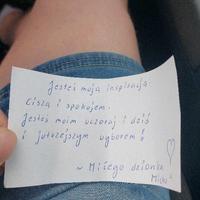 Jesteś moją inspiracją.
Ciszą i spokojem.
Jesteś moim wczoraj i dziś
i jutrzejszym wyborem!
~ Miłego dzionka